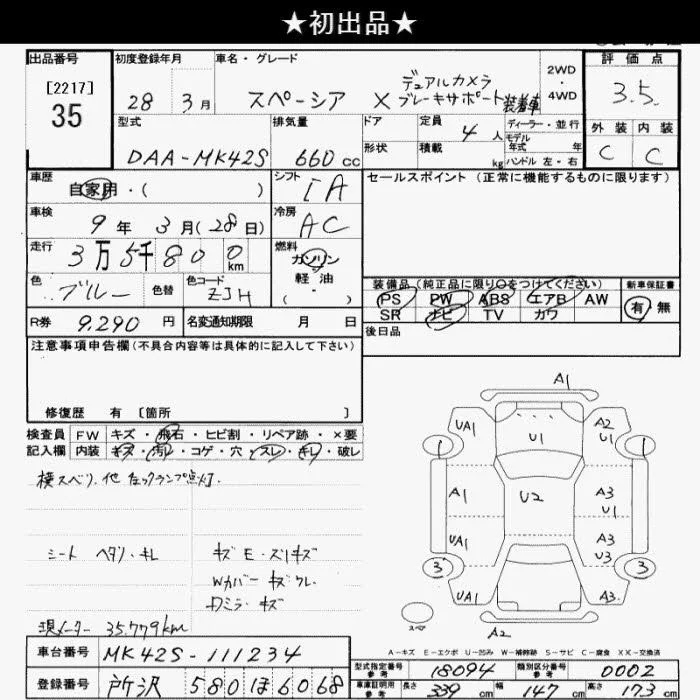 ★初出品★
出品番号
[2217]
35
初度登録年月
28 3月
車名・グレード
スペーシア X デュアルカメラ
ブレーキサポート装着車
2WD
・
4WD
評価点
3.5
外装 内装
C C
型式
DAA-MK42S
排気量
660 cc
ドア
形状
定員 4 人
積載 kg
ディーラー・並行
モデル
年式 年
ハンドル 左・右
車歴
自家用・( )
シフト
IA
車検
9年 3月(28日)
冷房
AC
走行
3万5千800km
燃料
ガソリン
軽油
( ・ )
色
ブルー
色替
色コード
ZJH
R券 9,290 円
名変通知期限 月 日
セールスポイント (正常に機能するものに限ります)
装備品(純正品に限り○をつけてください)
PS PW ABS エアB AW
SR ナビ TV カワ
新車保証書
有・無
後日品
注意事項申告欄(不具合内容等は具体的に記入して下さい)
修復歴 有 [箇所
検査員
記入欄
FW キズ・飛石・ヒビ割・リペア跡・×要
内装 キズ・汚れ・コゲ・穴・スレ・キレ・破レ
横スベリ、他 ナックランプ点灯.
シート ヘタリ・キレ
キズE・スリキズ
Wカバー キズ・ワレ.
ドミラ・キズ
現メーター 35.779km
A1
UA1
U1
A2
U1
A1
U2
A3
U1
UA1
A3
U3
3
3
UA1
A3
スペア
A2
A-キズ E-エクボ U-凹み W-補修跡 S-サビ C-腐食 XX-交換済
車台番号 MK42S-111234
登録番号 所沢 580 ほ 6068
型式指定番号
参考
18094
類別区分番号
参考
0002
車庫証明用
参考
長さ 339 cm
幅 147 cm
高さ 173 cm